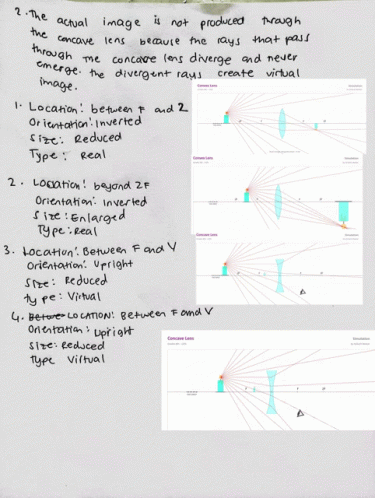 2. The actual image is not produced through
the concave lens because the rays that pass
through the concave lens diverge and never
emerge. the divergent rays create virtual
image.
1. Location: between F and 2
Orientation: Inverted
Size: Reduced
Type: Real
2. Location: beyond 2F
Orientation: Inverted
Size: Enlarged
Type: Real
3. Location: Between F and V
Orientation: Upright
Size: Reduced
type: Virtual
4. Location: Between F and V
Orientation: Upright
Size: Reduced
Type Virtual
Convex Lens
Convex Lens
Concave Lens
Concave Lens